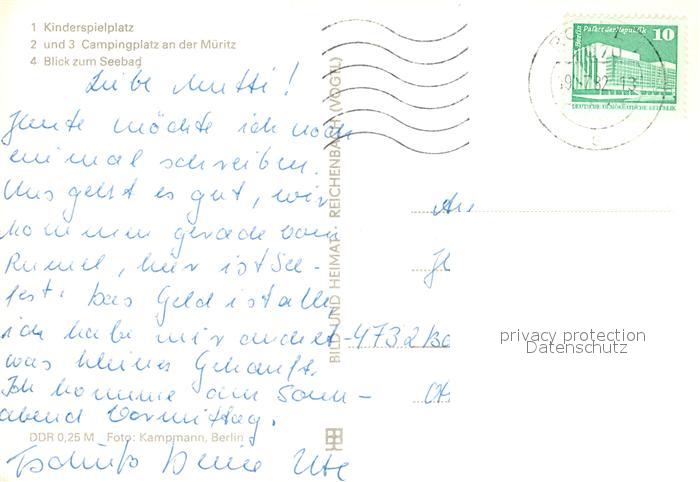 1 Kinderspielplatz
2 und 3 Campingplatz an der Müritz
4 Blick zum Seebad
Liebe Mutti!
Heute möchte ich noch
einmal schreiben.
Uns geht es gut, wir
kommen gerade vom
Rummel, hier ist See-
fest. Das Geld ist alle,
ich habe mir
was kleines gekauft.
Ich komme am Sonn-
abend Vormittag.
DDR 0,25 M Foto: Kampmann, Berlin
Tschüß Deine Ute
BILD UND HEIMAT REICHENBACH (VOGTL)
Berlin Palast der Republik 10
DEUTSCHE DEMOKRATISCHE REPUBLIK
An
4732
privacy protection
Datenschutz